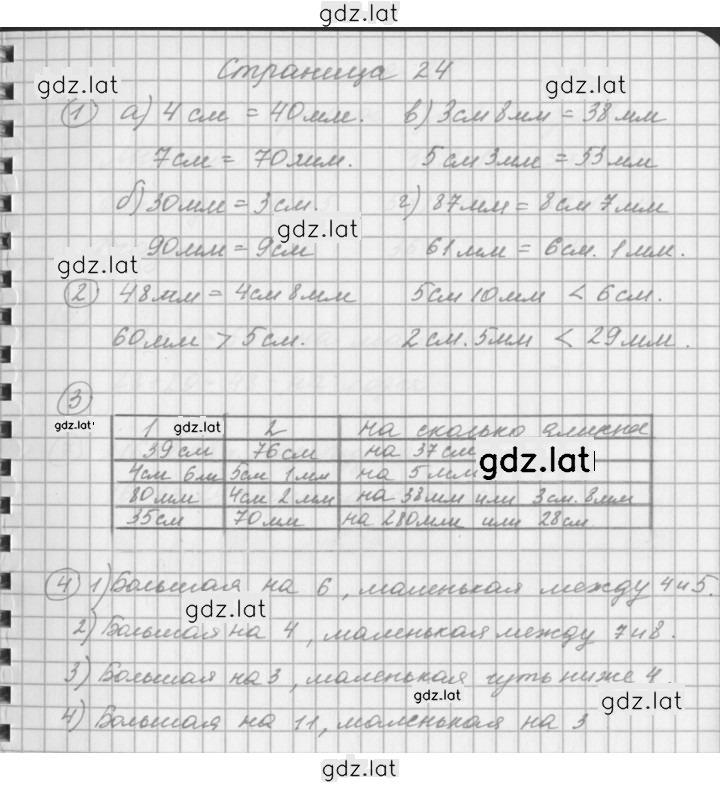 gdz.lat
Страница 24
gdz.lat gdz.lat
1 а) 4 см = 40мм. в) 3см 8мм = 38 мм
7см = 70мм. 5 см 3мм = 53 мм
б) 30мм = 3 см. г) 87мм = 8см 7мм
gdz.lat
90мм = 9см 61 мм = 6см. 1 мм.
gdz.lat
2 48мм = 4см 8мм 5см 10мм < 6см.
60мм > 5 см. 2 см. 5мм < 29мм.
3
gdz.lat 1 gdz.lat 2 на сколько длинна
39см 76см на 37см
gdz.lat
4см 6м 5см 1мм на 5мм
80мм 4см 2мм на 38мм или 3см. 8мм
35см 70мм на 280мм или 28см
4 1) Большая на 6, маленькая между 4 и 5.
gdz.lat
2) Большая на 4, маленькая между 7 и 8.
3) Большая на 3, маленькая чуть ниже 4.
gdz.lat gdz.lat
4) Большая на 11, маленькая на 3
gdz.lat